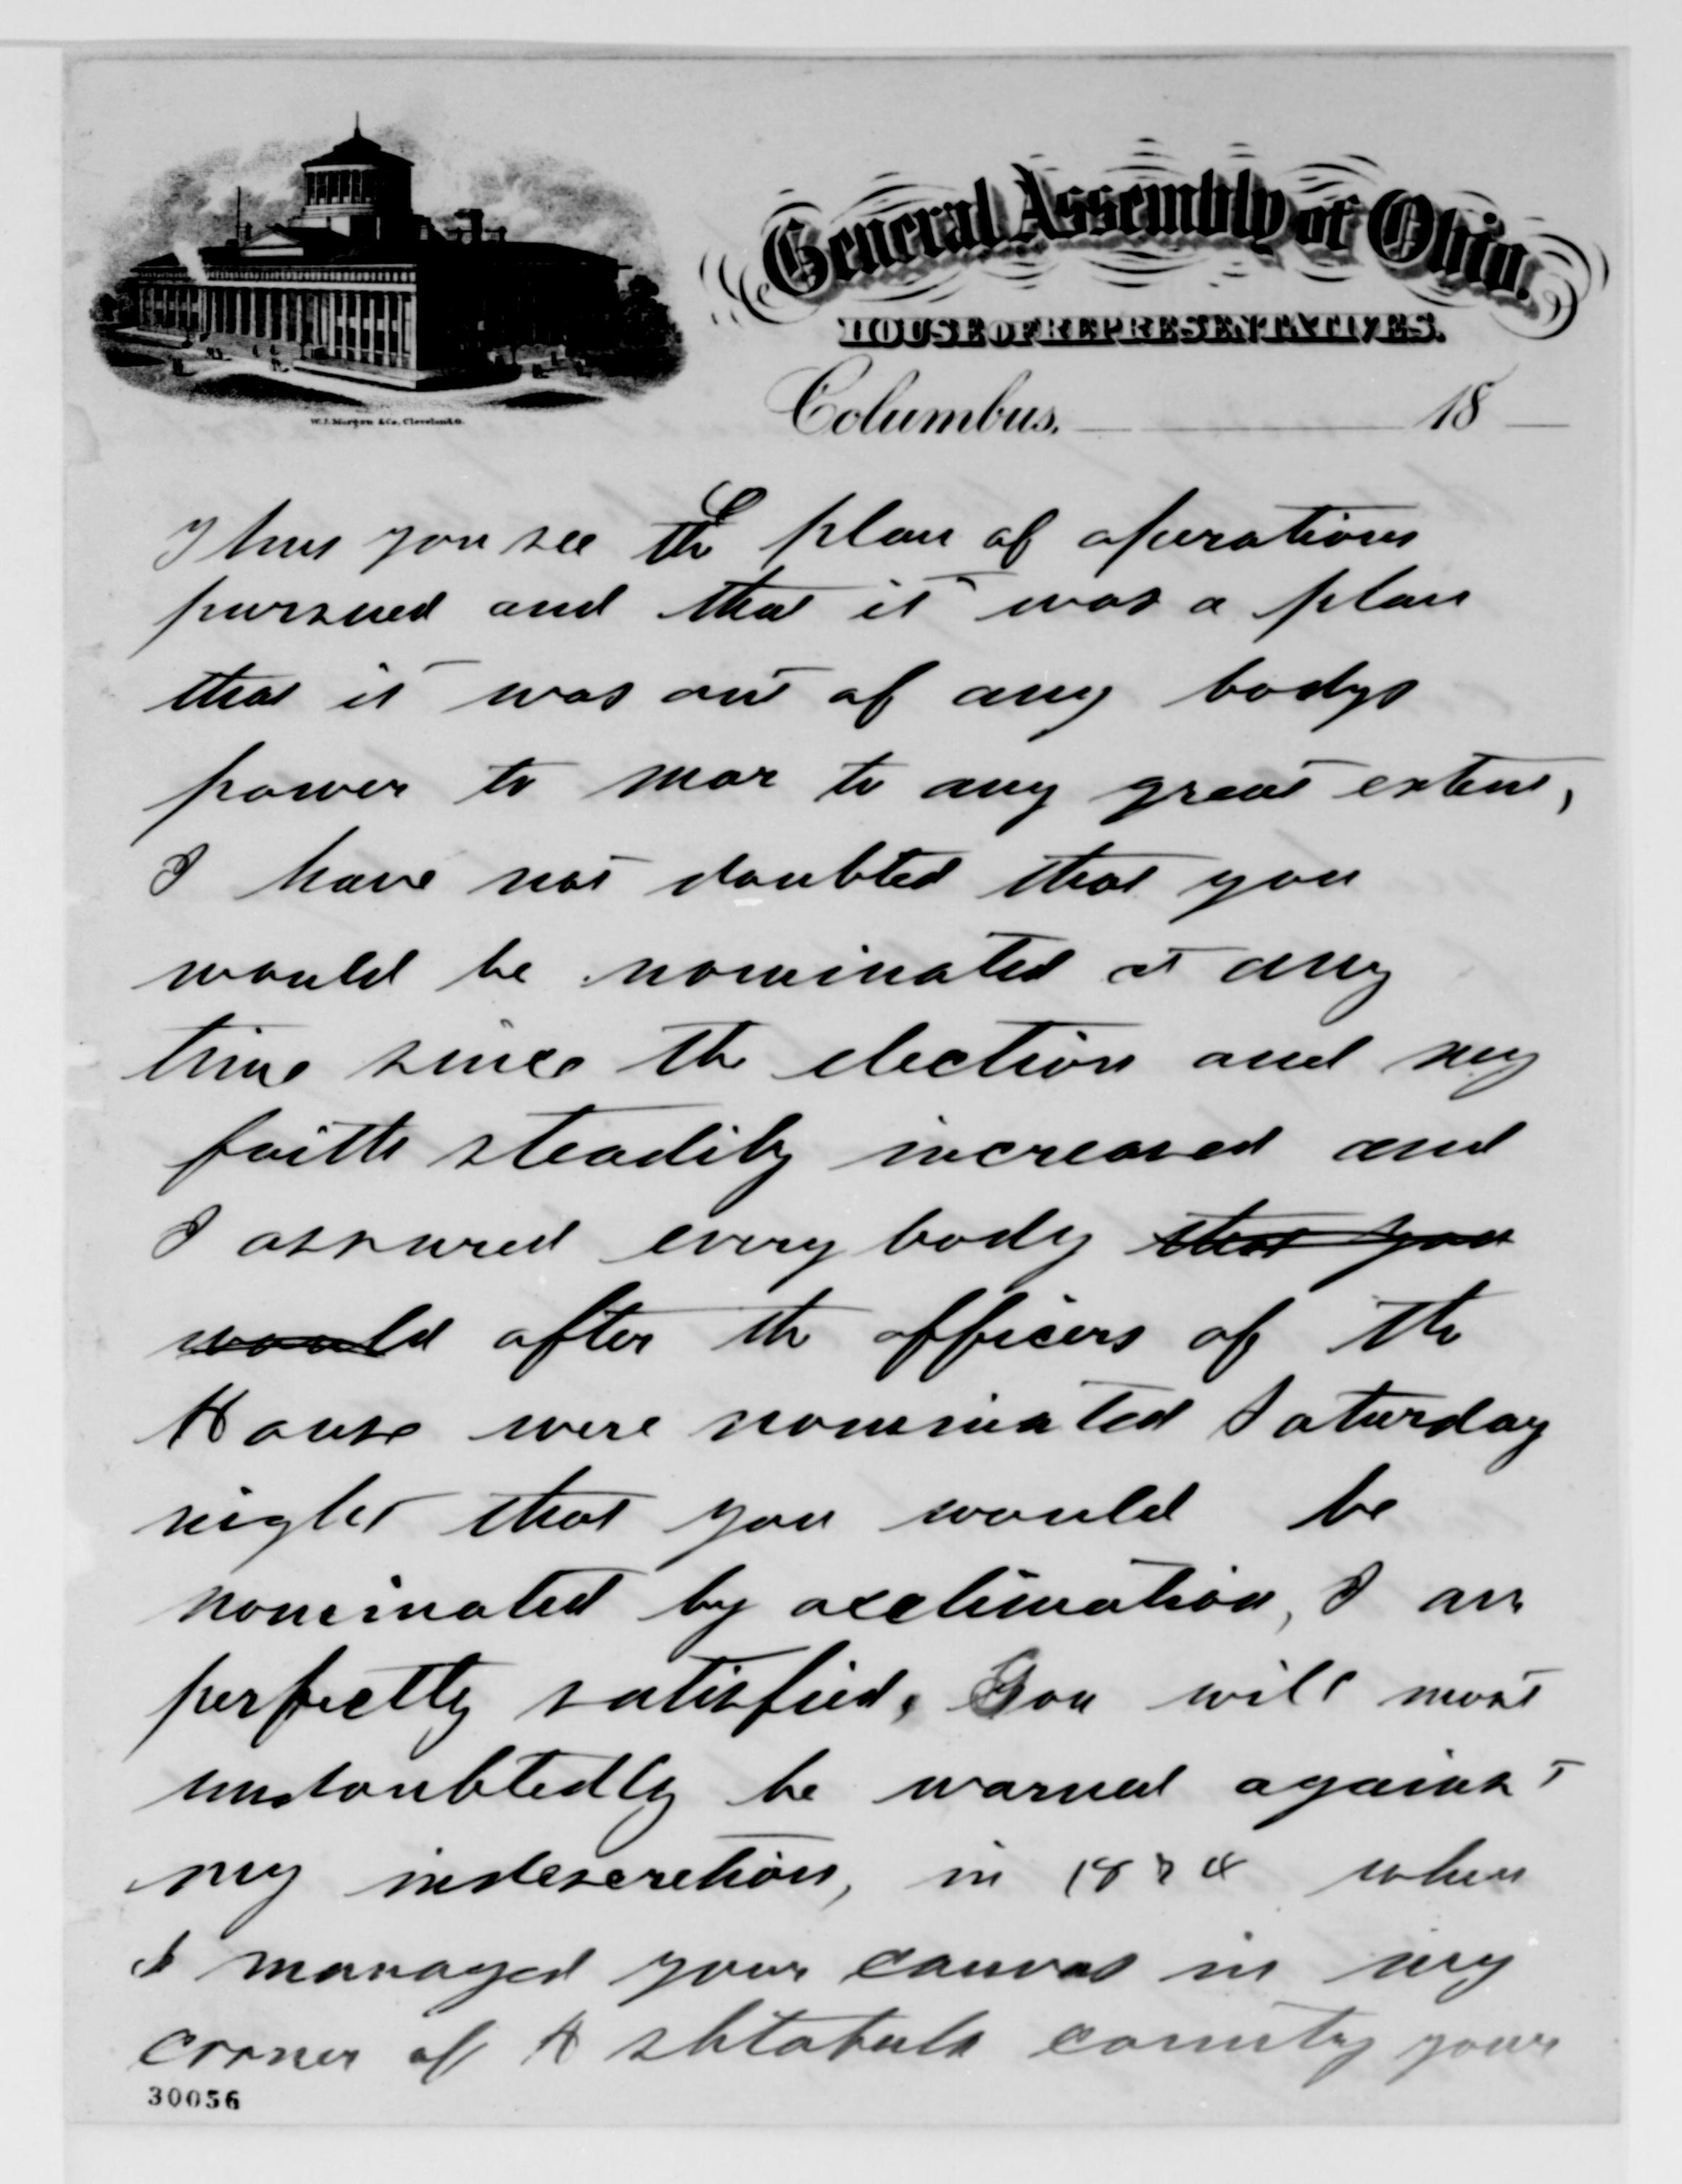 General Assembly of Ohio.
HOUSE OF REPRESENTATIVES.
W.J. Morgan & Co. Cleveland, O.
Columbus, 18
Thus you see the plan of operations
pursued and that it was a plan
that it was out of any bodys
power to mar to any great extent,
I have not doubted that you
would be nominated at any
time since the election and my
faith steadily increased and
I assured every body that you
would after the officers of the
House were nominated Saturday
night that you would be
nominated by acclimation, I am
perfectly satisfied. You will most
undoubtedly be warned against
my indescretion, in 1874 when
I managed your canvas in my
corner of Ashtabula county your
30056